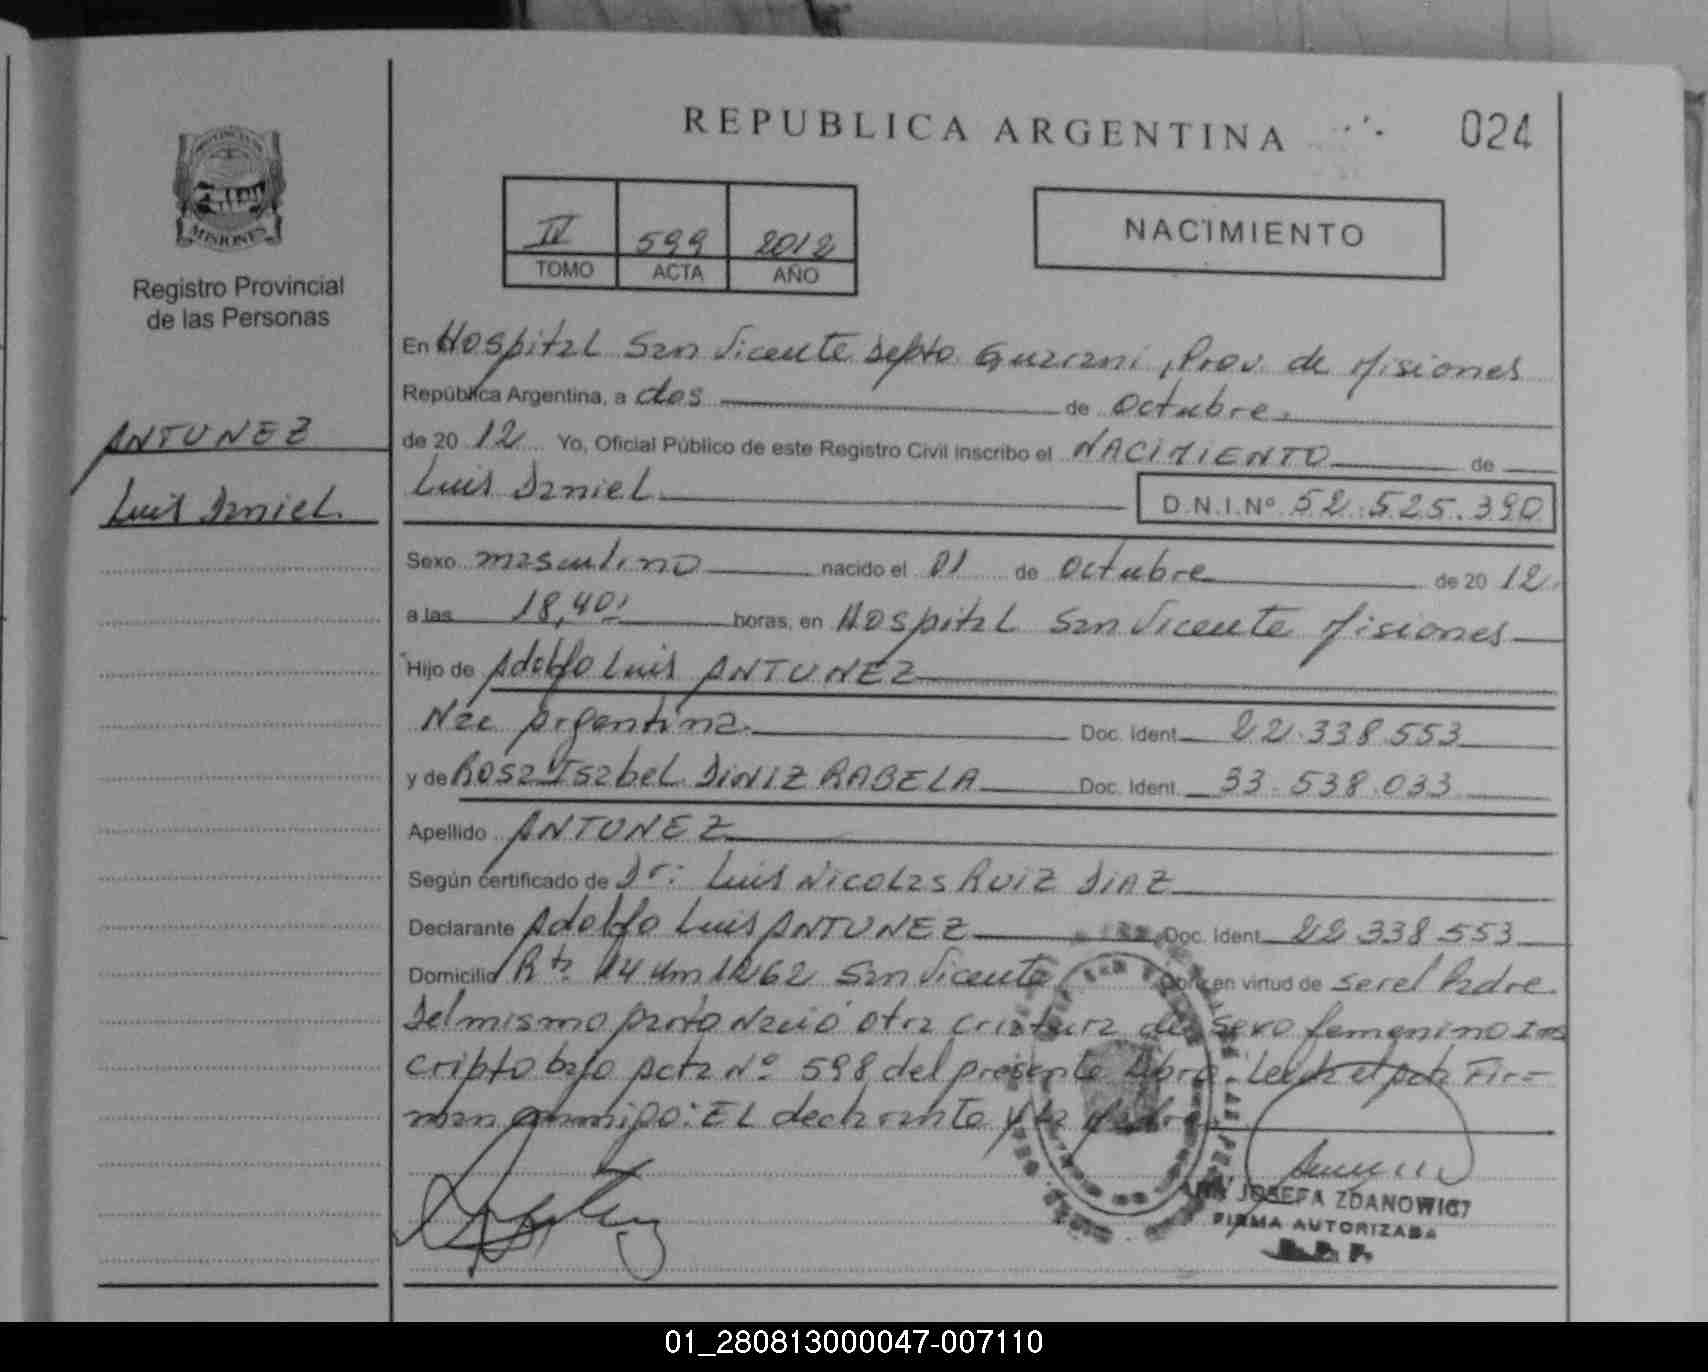 REPUBLICA ARGENTINA
024
PROVINCIA DE
MISIONES
Registro Provincial
de las Personas
IV 599 2012
TOMO ACTA AÑO
NACIMIENTO
ANTUNEZ
Luis Daniel
En Hospital San Vicente Depto Guarani, Prov. de Misiones
República Argentina, a dos de Octubre
de 20 12 Yo, Oficial Público de este Registro Civil inscribo el NACIMIENTO de
Luis Daniel D.N.I.Nº 52.525.390
Sexo masculino nacido el 01 de Octubre de 20 12
a las 18,40 horas, en Hospital San Vicente Misiones
Hijo de Adolfo Luis ANTUNEZ
Nac Argentina Doc. Ident. 22.338.553
y de Rosa Isabel DINIZ RABELA Doc. Ident. 33.538.033
Apellido ANTUNEZ
Según certificado de Dr: Luis Nicolas Ruiz DIAZ
Declarante Adolfo Luis ANTUNEZ Doc. Ident. 22 338 553
Domicilio Rta 14 Km 1262 San Vicente Obra en virtud de ser el Padre
Del mismo parto Nació otra criatura de sexo femenino Ins
cripto bajo Acta Nº 598 del presente libro. Leida el Acta Fir=
man conmigo: EL declarante y la Madre
JOSEFA ZDANOWICZ
FIRMA AUTORIZADA
R. P. P.
01_280813000047-007110